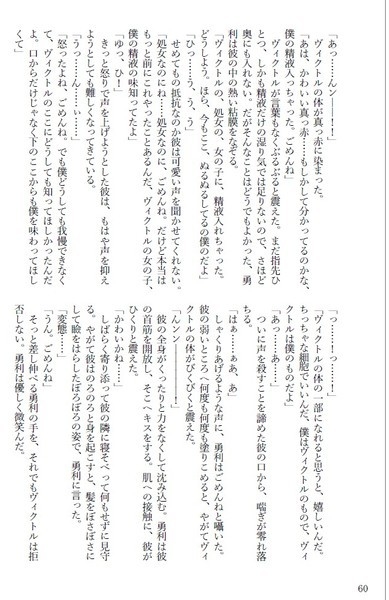 「あっ……んン――！！」
ヴィクトルの体が真っ赤に染まった。
「あは、かわいい真っ赤……もしかして分かってるのかな、
僕の精液入っちゃった。ごめんね」
ヴィクトルが言葉もなくぶるぶると震えた。まだ指先ひ
とつ、しかも精液だけの湿り気では足りないので、さほど
奥にも入れない。だがそんなことはどうでもよかった。勇
利は彼の中の熱い粘膜をなぞる。
「ヴィクトルの、処女の、女の子に、精液入れちゃった。
どうしよう。ほら、今もここ、ぬるぬるしてるの僕のだよ」
「ひっ……う、う、う」
せめてもの抵抗なのか彼は可愛い声を聞かせてくれない。
「処女なのにね……処女なのに、ごめんね。だけど本当は
もっと前にこれやったことあるんだ、ヴィクトルの女の子、
僕の精液の味知ってたよ」
「ゆっ、ひ！」
きっと怒りで声を上げようとした彼は、もはや声を抑え
ようとしても難しくなってきている。
「うっ……ん……ぃ……」
「怒ったよね、ごめんね。でも僕どうしても我慢できなく
て、ヴィクトルのここにどうしても知ってほしかったんだ
よ。口からだけじゃなく下のここからも僕を味わってほし
くて」
「っ……！っ……！」
「ヴィクトルの体の一部になれると思うと、嬉しいんだ。
ちっちゃな細胞でいいんだ。僕はヴィクトルのもので、ヴィ
クトルは僕のものだよ」
「あっ……あ……」
ついに声を殺すことを諦めた彼の口から、喘ぎが零れ落
ちる。
「はぁ……ぁあ、あ」
しゃくりあげるような声に、勇利はごめんねと囁いた。
彼の弱いところへ何度も何度も塗りこめると、やがてヴィ
クトルの体がびくびくと震えた。
「んンン――――！」
彼の全身がぐったりと力をなくして沈み込む。勇利は彼
の首筋を開放し、そこへキスをする。肌への接触に、彼が
ひくりと震えた。
「かわいかね……」
しばらく寄り添って彼の隣に寝そべって何もせずに見守
る。やがて彼はのろのろと身を起こすと、髪をばさばさに
して瞼をはらしたぼろぼろの姿で、勇利に言った。
「変態……」
「うん。ごめんね」
そっと差し伸べる勇利の手を、それでもヴィクトルは拒
否しない。勇利は優しく微笑んだ。
60